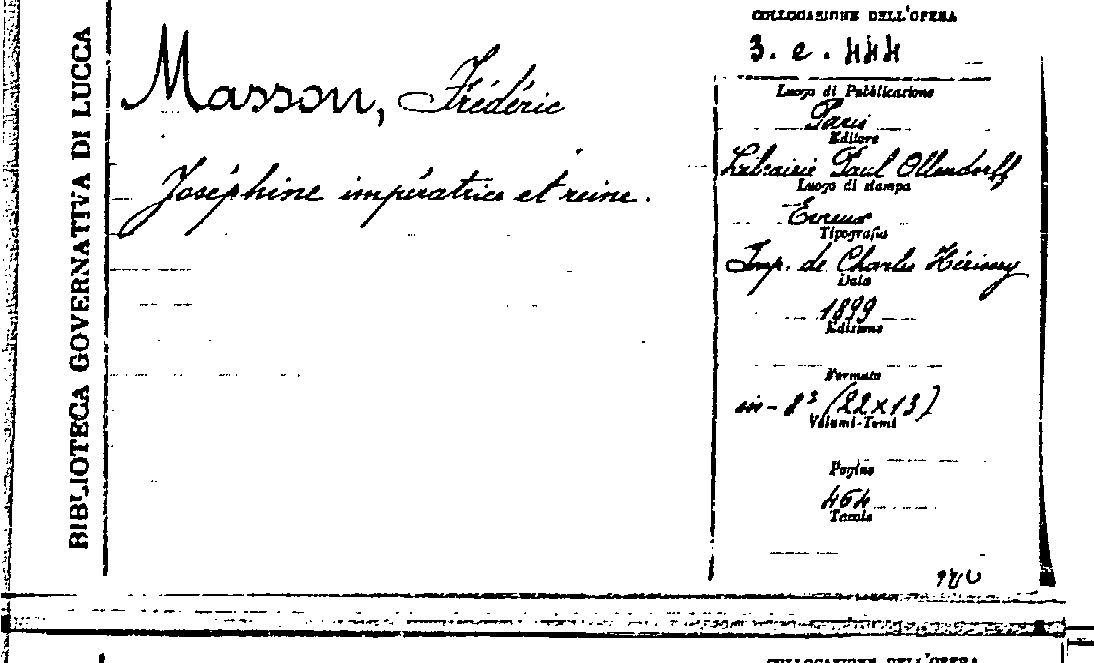 BIBLIOTECA GOVERNATIVA DI LUCCA
Masson, Frédéric
Joséphine impératrice et reine.
COLLOCAZIONE DELL'OPERA
3. e. 444
Luogo di Pubblicazione
Paris
Editore
Librairie Paul Ollendorff
Luogo di stampa
Evreux
Tipografia
Imp. de Charles Hérissey
Data
1899
Edizione
Formato
in-8° (22x13)
Volumi-Tomi
Pagine
464
Tavole
COLLOCAZIONE DELL'OPERA